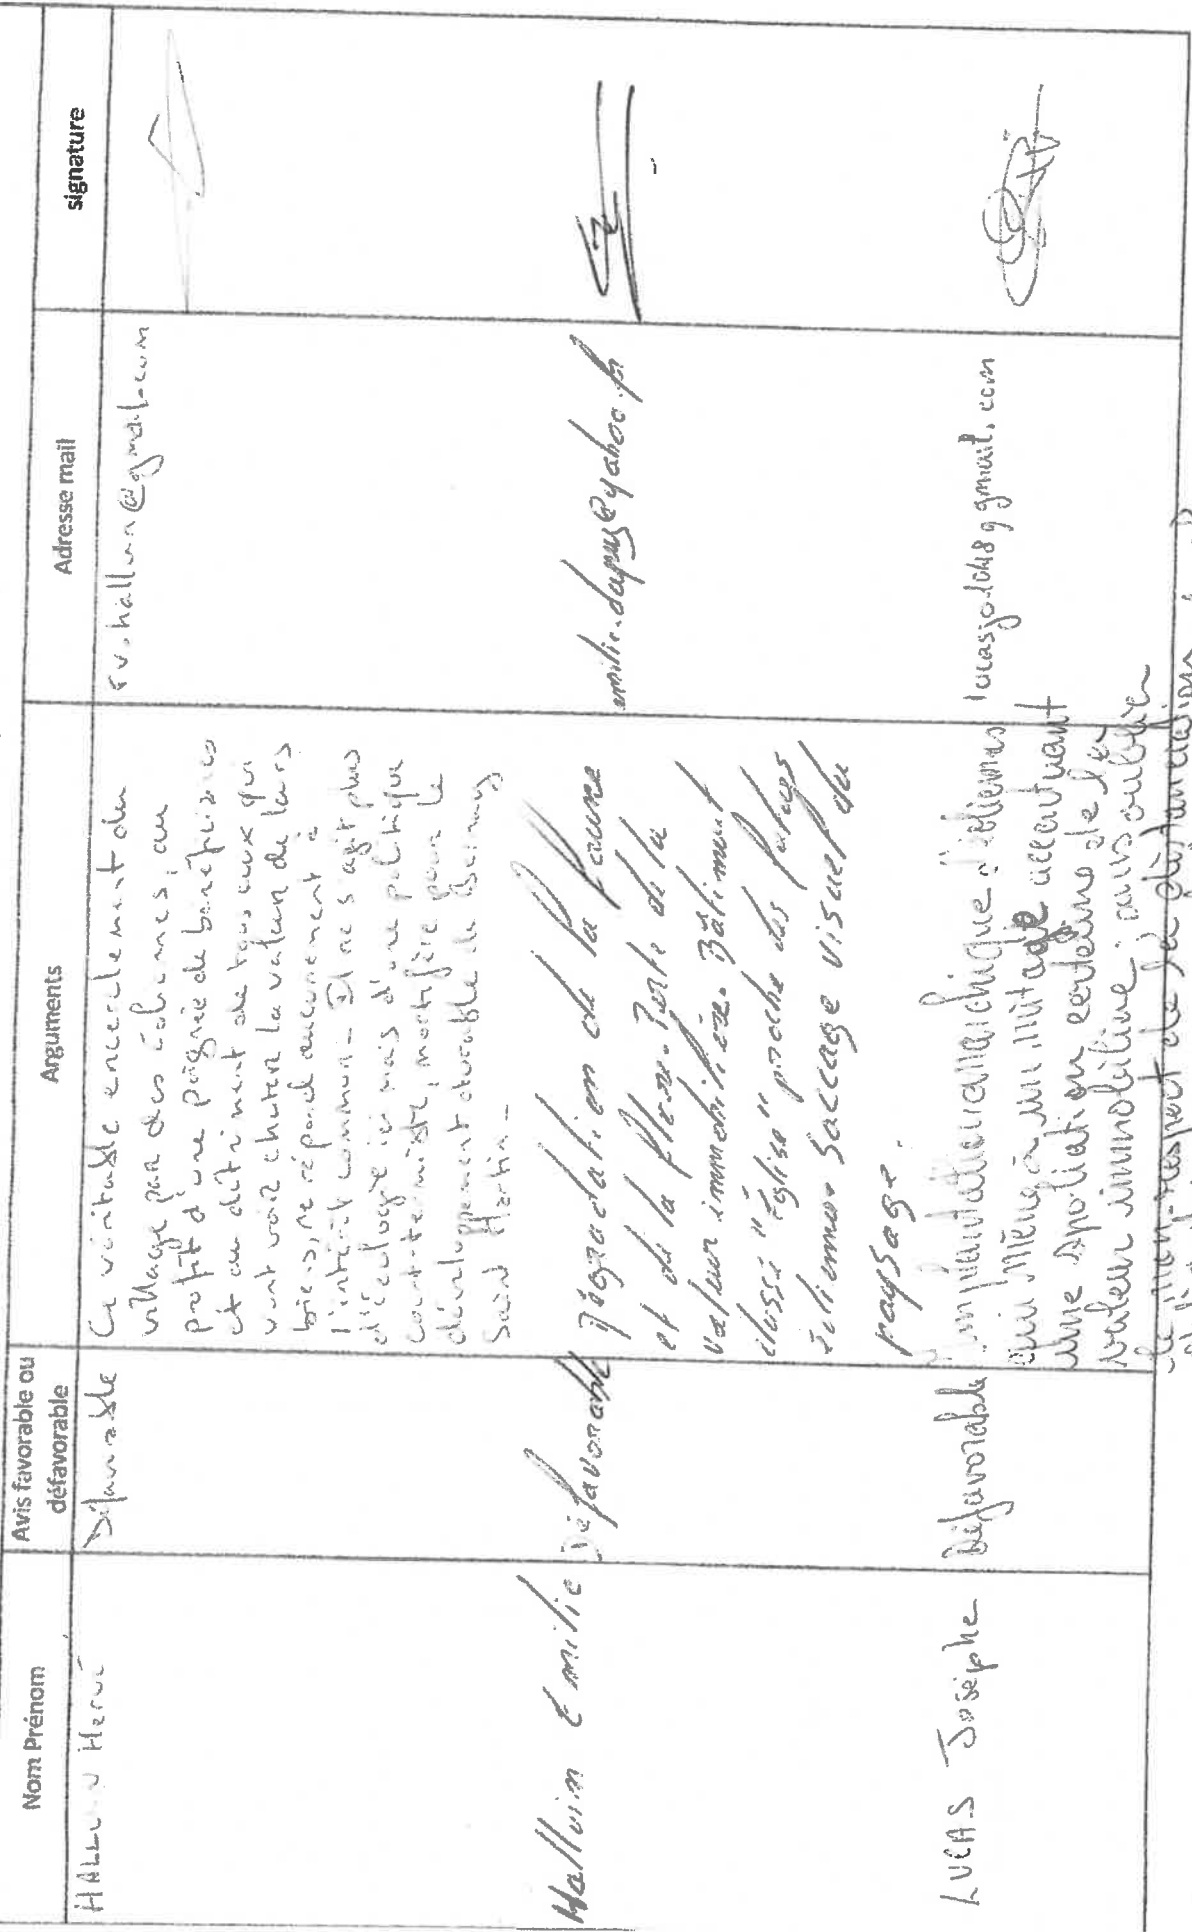 Nom Prénom
Avis favorable ou
défavorable
Arguments
Adresse mail
signature
Hervé
Défavorable
Ce véritable encerclement du
village par des éoliennes, au
profit d'une poignée de bénéficiaires
et au détriment de tous ceux qui
vont voir chuter la valeur de leurs
biens, ne répond aucunement à
l'intérêt commun - Il ne s'agit plus
d'écologie ici mais d'une politique
court-termiste, mortifère pour le
développement durable de Bernay
Saint Martin -
Halluin Emilie
Défavorable
Dégradation de la faune
et de la flore. Perte de la
valeur immobilière. Bâtiment
classé "église" proche des parcs
éoliennes Saccage visuel du
paysage.
@yahoo.fr
LUCAS Josèphe
Défavorable
Implantation anarchique d'éoliennes
qui mène à un mitage accentuant
une spoliation certaine de la
valeur immobilière; sans oublier
le non-respect de la distanciation
gmail.com